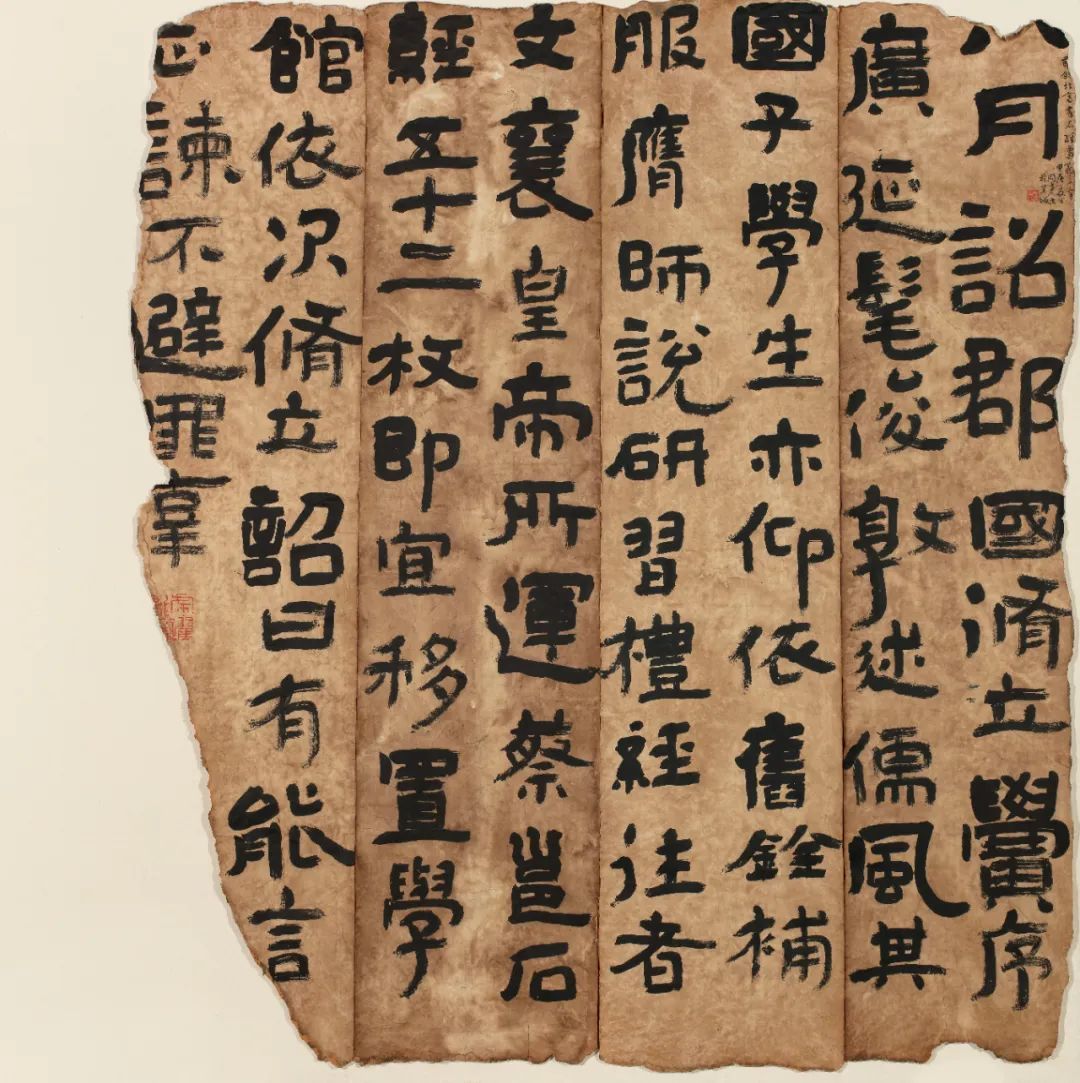 八月詔郡國脩立黌序
廣延髦俊敦述儒風其
國子學生亦仰依舊銓補
服膺師說研習禮經往者
文襄皇帝所運蔡邕石
經五十二枚即宜移置學
館依次脩立詔曰有能言
正諫不避罪辜